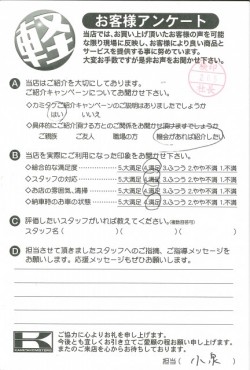 軽
お客様アンケート
当店では、お買い上げ頂いたお客様の声を可能
な限り現場に反映し、お客様により良い商品と
サービスを提供する事に努めています。
大変お手数ですが是非お声をお聞かせ下さい。
A 当店はご紹介を大切にしております。
ご紹介キャンペーンについてお聞かせ下さい。
◇カミタケご紹介キャンペーンのご説明はありましたでしょうか
はい いいえ
◇具体的にご紹介頂ける方とのご関係をお聞かせ頂けますでしょうか
ご親族 ご友人 職場の方 機会があれば紹介したい
B 当店を実際にご利用になった印象をお聞かせ下さい。
◇総合的な満足度 5.大満足 4.満足 3.ふつう 2.やや不満 1.不満
◇スタッフの対応 5.大満足 4.満足 3.ふつう 2.やや不満 1.不満
◇お店の雰囲気、清掃 5.大満足 4.満足 3.ふつう 2.やや不満 1.不満
◇納車時のお車の状態 5.大満足 4.満足 3.ふつう 2.やや不満 1.不満
C 評価したいスタッフがいれば教えてください。
スタッフ名( )( )( )
D 担当させて頂きましたスタッフへのご指摘、ご指導メッセージを
お願いします。応援メッセージもぜひお願いします。
K
ご協力に心よりお礼を申し上げます。
今後とも宜しくお引き立てご愛顧の程お願い申し上げます。
またのご来店を心からお待ちしております。
担当( 小泉 )